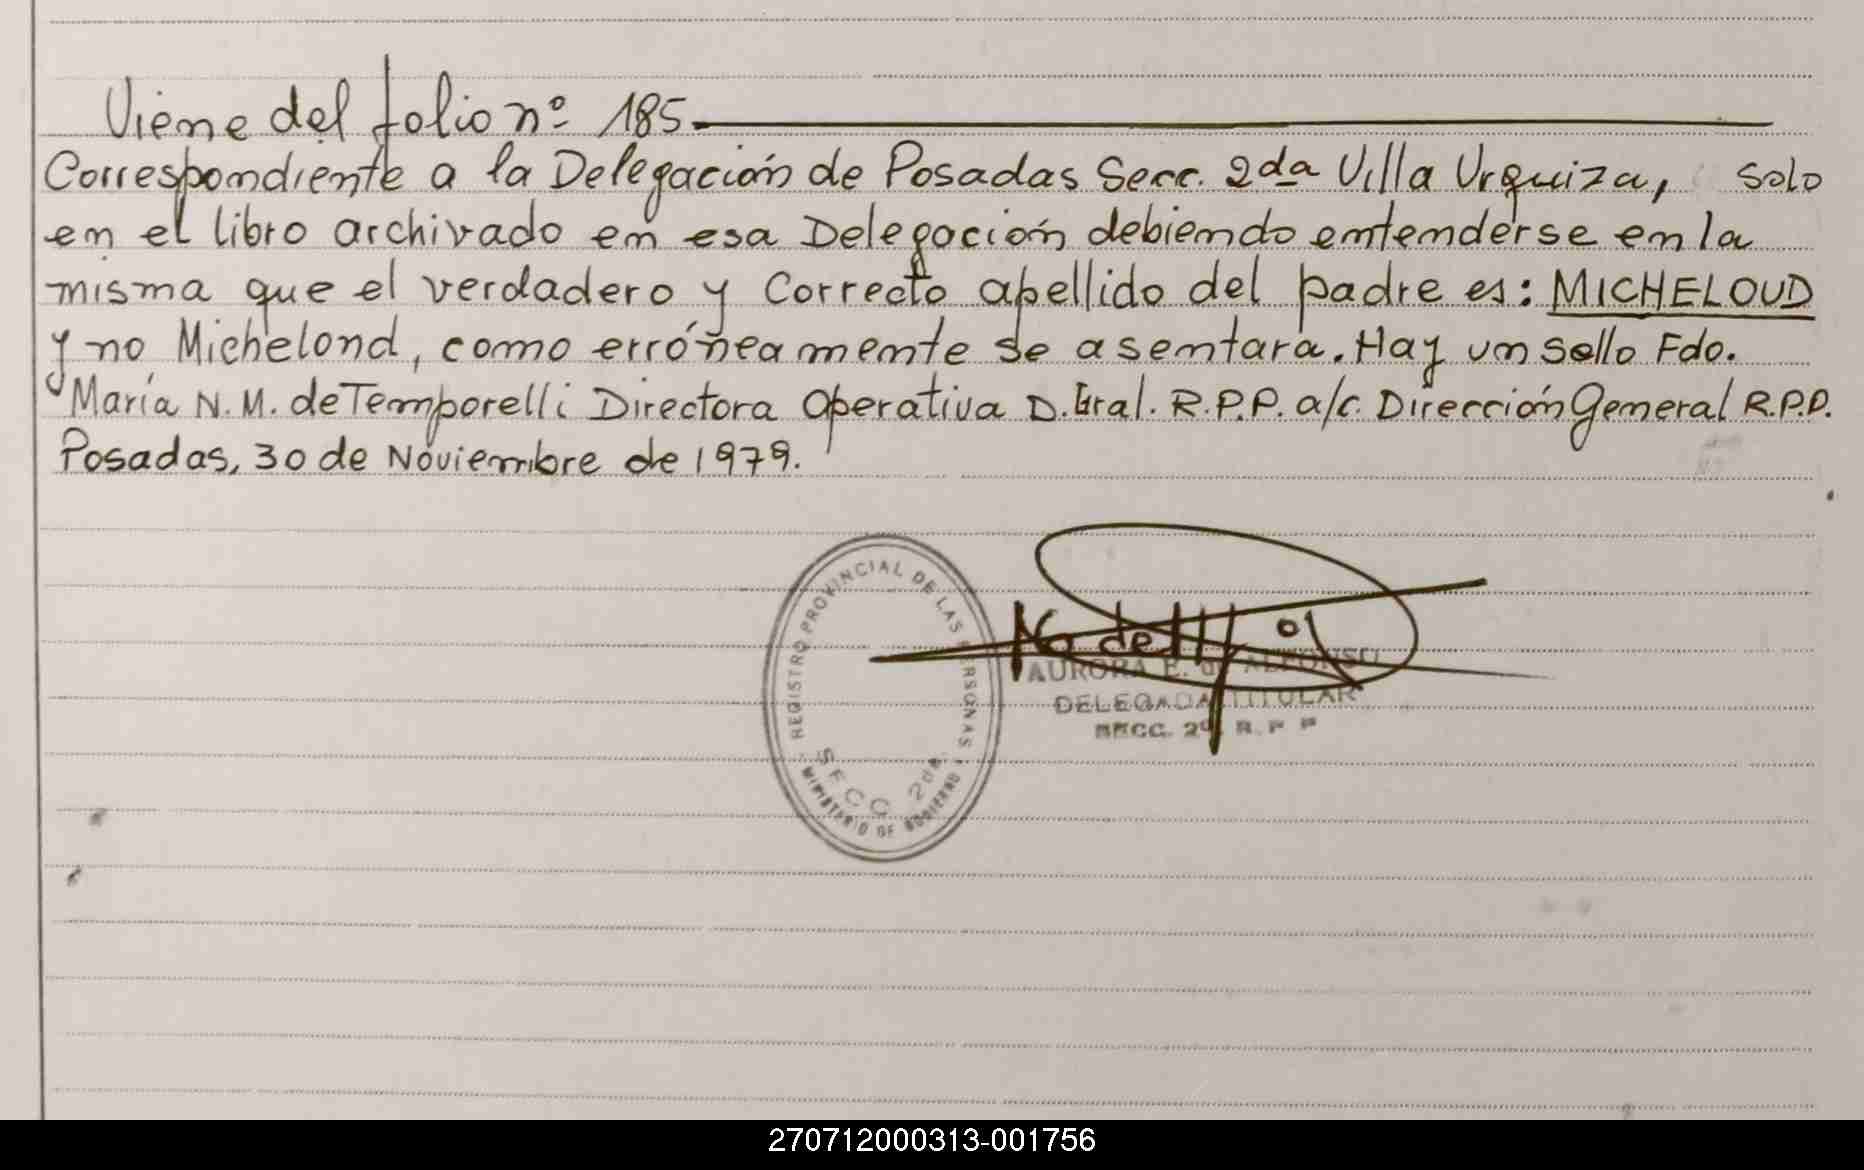 Viene del folio nº 185.
Correspondiente a la Delegación de Posadas Secc. 2da Villa Urquiza, solo
en el libro archivado en esa Delegación debiendo entenderse en la
misma que el verdadero y Correcto apellido del padre es: MICHELOUD
y no Michelond, como erróneamente se asentara. Hay un sello Fdo.
María N. M. de Temporelli Directora Operativa D. Gral. R.P.P. a/c. Dirección General R.P.P.
Posadas, 30 de Noviembre de 1979.
REGISTRO PROVINCIAL DE LAS PERSONAS
SECC 2da.
MINISTERIO DE GOBIERNO
AURORA E. de ALFONSO
DELEGADA TITULAR
SECC. 2da R. P P
270712000313-001756